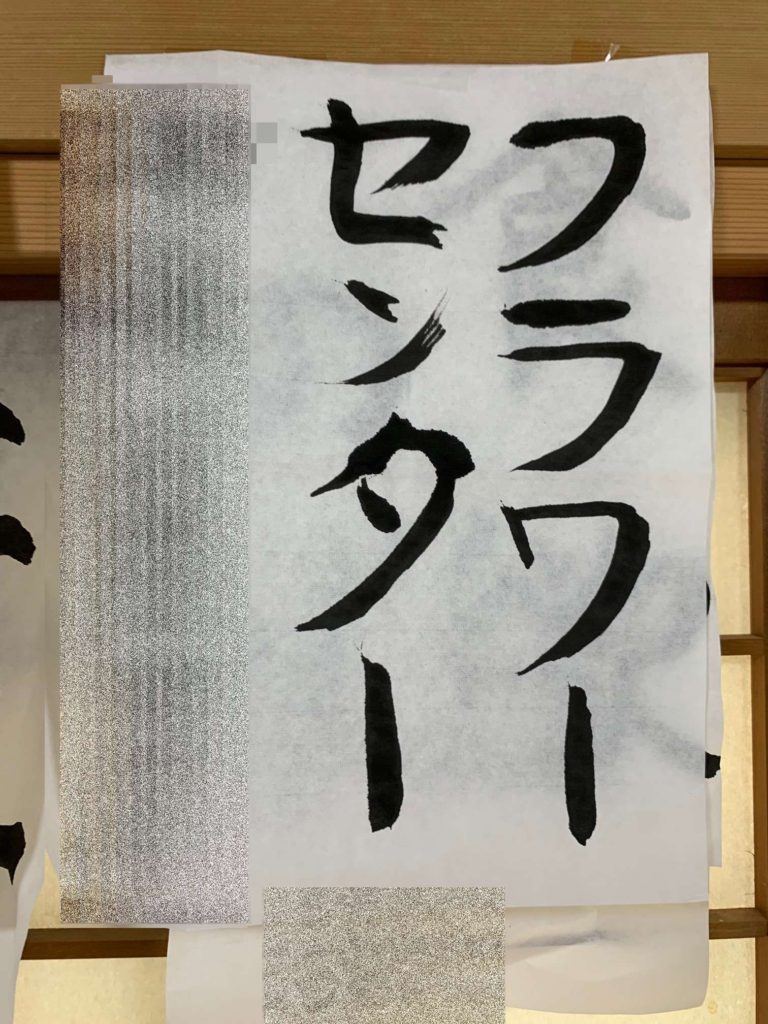 フラワー
センター